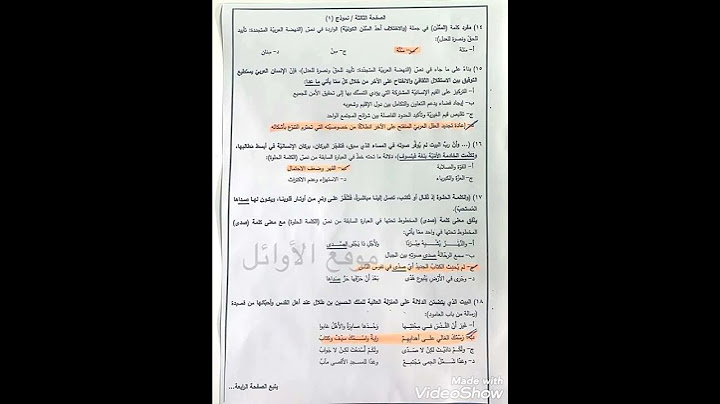 الصفحة الثالثة / نموذج (١)
١٤) مفرد كلمة (السُّنَن) في جملة (والاختلاف أحدُ السُّنَن الكونيّة) الواردة في نصّ (النهضة العربيّة المتجدّدة: تأييد
للحقّ ونصرة للعدل):
أ- سَنَة ب- سُنَّة ج- سِنّ د- سِنان
١٥) بناءً على ما جاء في نصّ (النهضة العربيّة المتجدّدة: تأييد للحقّ ونصرة للعدل)، فإنّ الإنسان العربيّ يستطيع
التوفيق بين الاستقلال الثقافيّ والانفتاح على الآخر من خلال كلّ ممّا يأتي ما عدا:
أ- التركيز على القيم الإنسانيّة المشتركة التي يؤدي التمسّك بها إلى تحقيق الأمن للجميع
ب- إيجاد فضاء يدعم التعاون والتكامل بين دول الإقليم وشعوبه
ج- تقليص قيم الغيريّة وتأكيد الحدود الفاصلة بين شرائح المجتمع الواحد
د- إعادة تجديد العقل العربيّ المنفتح على الآخر انطلاقًا من خصوصيّته التي تحترم التنوّع بأشكاله
١٦) (... وأنّ ربّ البيت لم يُوفّر صوته في المساء الذي سبق، فتفجّر البركان، بركان الإنسانيّة في أبسط مطالبها،
وتكلّمت الخادمة الأمّيّة بلغة فيلسوف)، دلالة ما تحته خطّ في العبارة السابقة من نصّ (الكلمة الحلوة):
أ- القوّة والصلابة ب- القهر وضعف الاحتمال
ج- العزّة والكبرياء د- الاستهزاء وعدم الاكتراث
١٧) (والكلمة الحلوة إذ تُقال أو تُكتب، تصل إلينا مباشرةً، فتنقر على وتر من أوتار قلوبنا، ويكون لها صداها
المُستحبّ).
يتّفق معنى كلمة (صدى) المخطوط تحتها في العبارة السابقة من نصّ (الكلمة الحلوة) مع معنى كلمة (صدى)
المخطوط تحتها في واحد ممّا يأتي:
ب- سمع الرحّالة صدى صوته بين الجبال
ج- لم يُحدِث الكتاب الجديد أيّ صدًى في نفوس النّاس
١٨) البيت الذي يتضمّن الدلالة على المنزلة العالية للملك الحسين بن طلال عند أهل القدس وأحبّائها من قصيدة
(رسالة من باب العامود):
أ- غَيْرَ أنّ القُدْسَ في مِحْنَتِها وَحْدَها صابِرَةٌ والأهْلُ غابوا
ب- رَسْمُكَ الغالي على أهدابِهِمْ رايةٌ واسْمُكَ سَيْفٌ وكتابُ
ج- ولَكَمْ نادَيْتُ لكِنْ لا صَدًى ولَكَمْ أسْمَعْتُ لكِنْ لا جَوابُ
د- وغدًا شَمْلُ الحِمى مُجْتَمِعٌ وغدًا للمسجد الأقصى مآبُ
يتبع الصفحة الرابعة...
موقع الأوائل
Made with
VideoShow